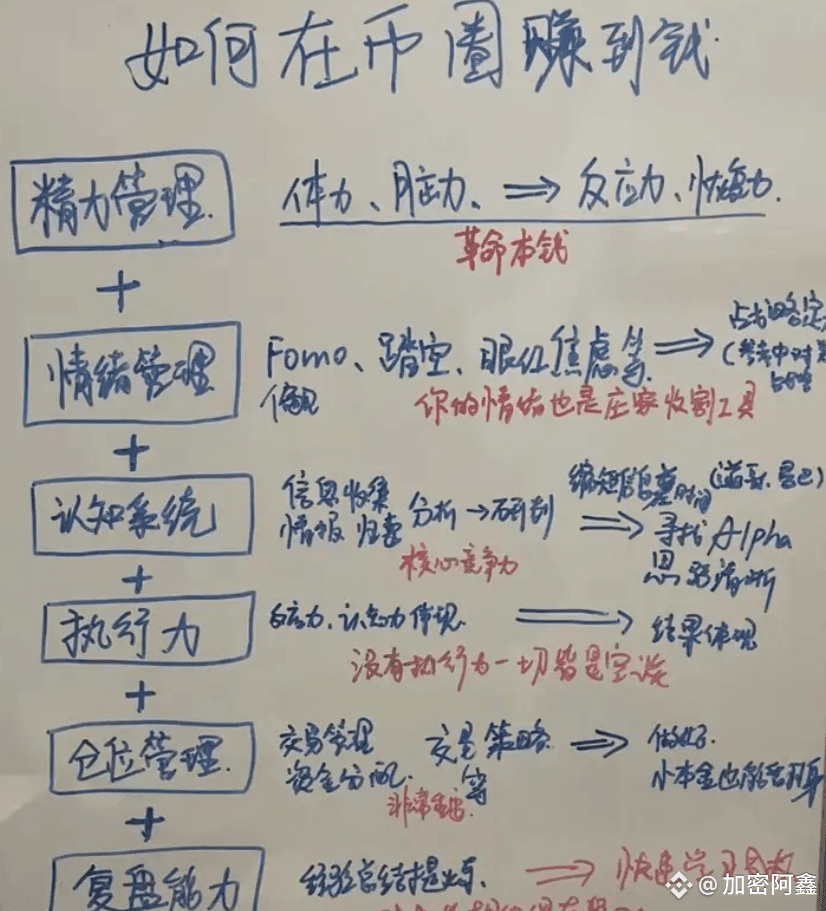 如何在币圈赚到钱
精力管理. 体力、脑力、⇒ 反应力、恢复力.
革命本钱
+
情绪管理 Fomo、踏空、眼红焦虑等. ⇒
偏见 你的情绪也是庄家收割工具
+
认知系统 信息收集 分析→研判 ⇒ 缩短信息差时间
情报 归纳 寻找Alpha
核心竞争力 思路清晰
+
执行力 反应力、认知力体现. ⇒ 结果体现
没有执行力一切皆是空谈
+
仓位管理. 交易管理 交易策略 ⇒ 做好.
资金分配. 等 小本金也能翻身
非常重要.
+
复盘能力 经验总结提炼. ⇒ 快速学习
@加密阿鑫